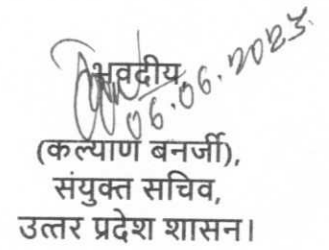 भवदीय,
06.06.2023
(कल्याण बनर्जी),
संयुक्त सचिव,
उत्तर प्रदेश शासन।